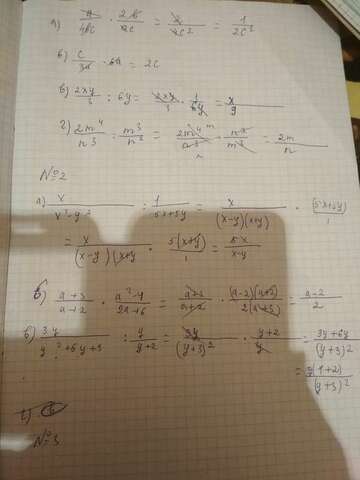 а) a/4bc · 2b/2c = 2/2c² = 1/2c²
б) c/3a · 6a = 2c
в) 2xy/3 : 6y = 2xy/3 · 1/6y = x/9
г) 2m⁴/n³ : m³/n² = 2m⁴ m/n³ n · n²/m³ = 2m/n
№2
а) x/x²-y² : 1/5x+5y = x/(x-y)(x+y) · 5x+5y/1
= x/(x-y)(x+y) · 5(x+y)/1 = 5x/x-y
б) a+3/a+2 · a²-4/2a+6 = a+3/a+2 · (a-2)(a+2)/2(a+3) = a-2/2
в) 3y/y²+6y+9 : y/y+2 = 3y/(y+3)² · y+2/y = 3y+6y/(y+3)²
(y+3)²
№3